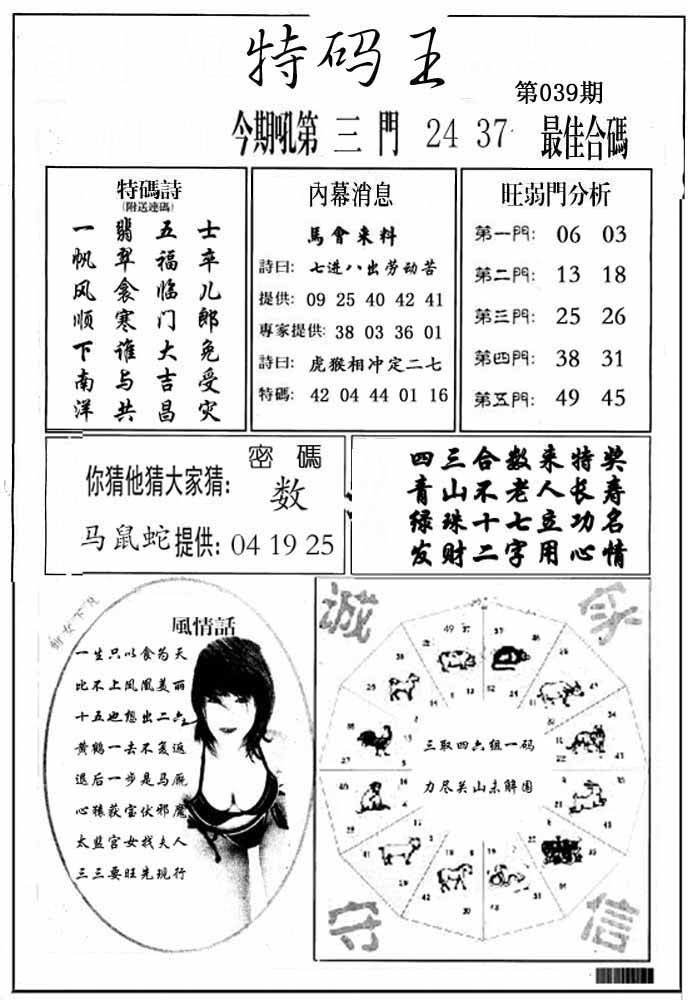 特码王
第039期
今期吼第 三 門 24 37 最佳合碼
特碼詩
(附送连碼)
一帆风顺下南洋
翡翠衾寒谁与共
五福临门大吉昌
士卒儿郎免受灾
內幕消息
馬會来料
詩曰: 七进八出劳动苦
提供: 09 25 40 42 41
專家提供: 38 03 36 01
詩曰: 虎猴相冲定二七
特碼: 42 04 44 01 16
旺弱門分析
第一門: 06 03
第二門: 13 18
第三門: 25 26
第四門: 38 31
第五門: 49 45
密碼
你猜他猜大家猜: 数
马鼠蛇提供: 04 19 25
四三合数来特奖
青山不老人长寿
绿珠十七立功名
发财二字用心情
風情話
一生只以食为天
比不上凤凰美丽
十五也想出二六
黄鹤一去不复返
退后一步是马厩
心猿获宝伏邪魔
太监宫女找夫人
三三要旺先现行
誠 家 守 信
三取四六组一码
力尽关山未解围